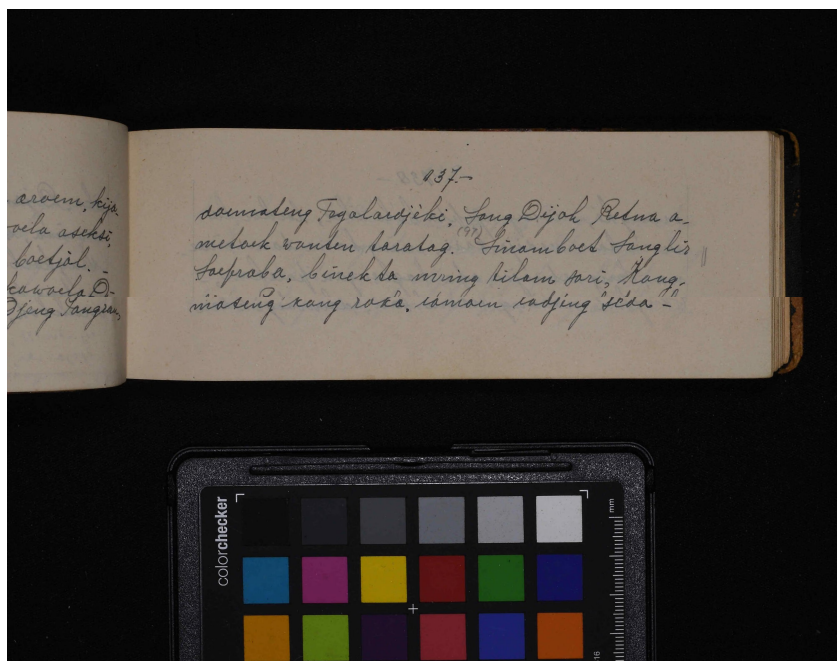 aroem, kija-
oela aseksi,
boetjal. -
kawoela D-
Djeng Pangran,
137.-
doemateng Tegalardjeki, Sang Dijah Retna a-
metoek wonten taratag. (97) Sinamboet Sanglir
Soeproba, binekta mring tilam sari, Kang-
mateng kang raka,
colorchecker
mm
16